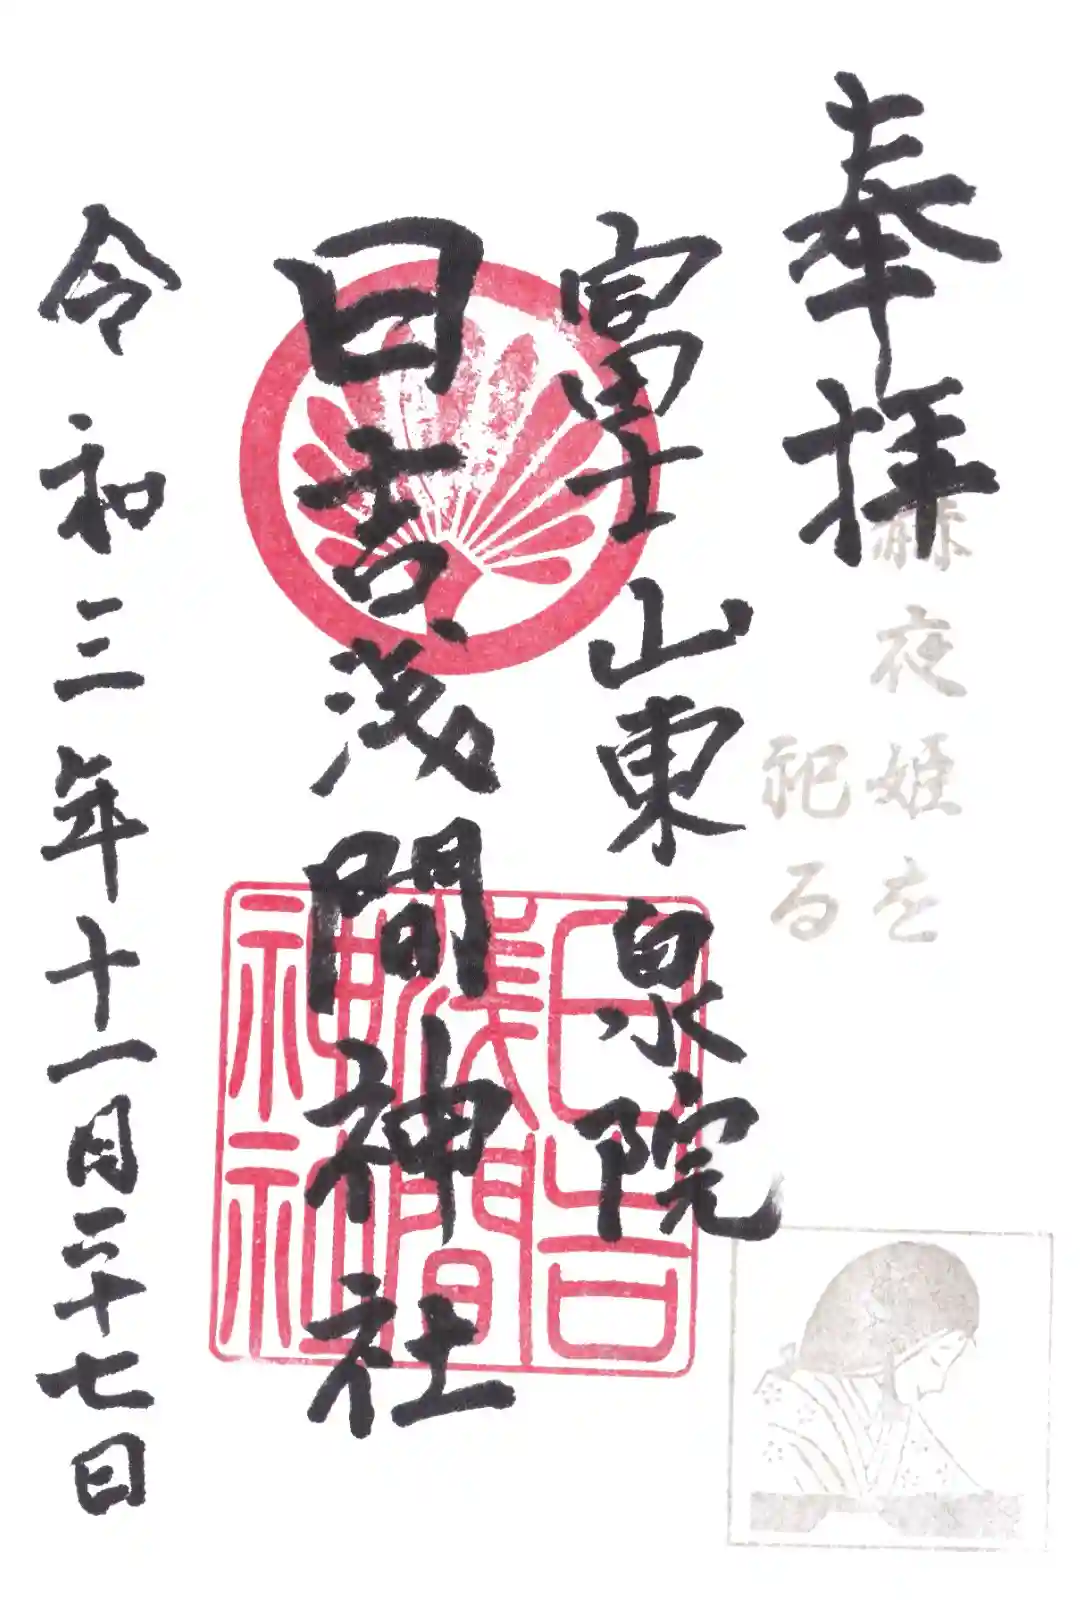 奉拝
赫夜姫を
祀る
富士山東泉院
日吉浅間神社
日吉
浅間
神社
令和三年十一月二十七日